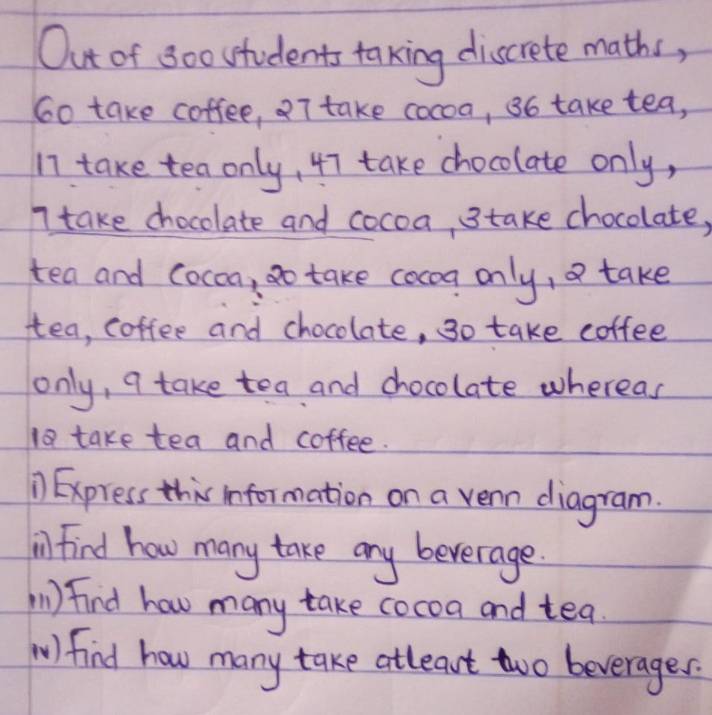 Out of 300 students taking discrete maths,
60 take coffee, 27 take cocoa, 36 take tea,
17 take tea only, 47 take chocolate only,
7 take chocolate and cocoa, 3 take chocolate,
tea and Cocoa, 20 take cocoa only, 2 take
tea, coffee and chocolate, 30 take coffee
only, 9 take tea and chocolate whereas
12 take tea and coffee.
i) Express this information on a venn diagram.
ii) Find how many take any beverage.
iii) Find how many take cocoa and tea.
iv) Find how many take atleast two beverages.